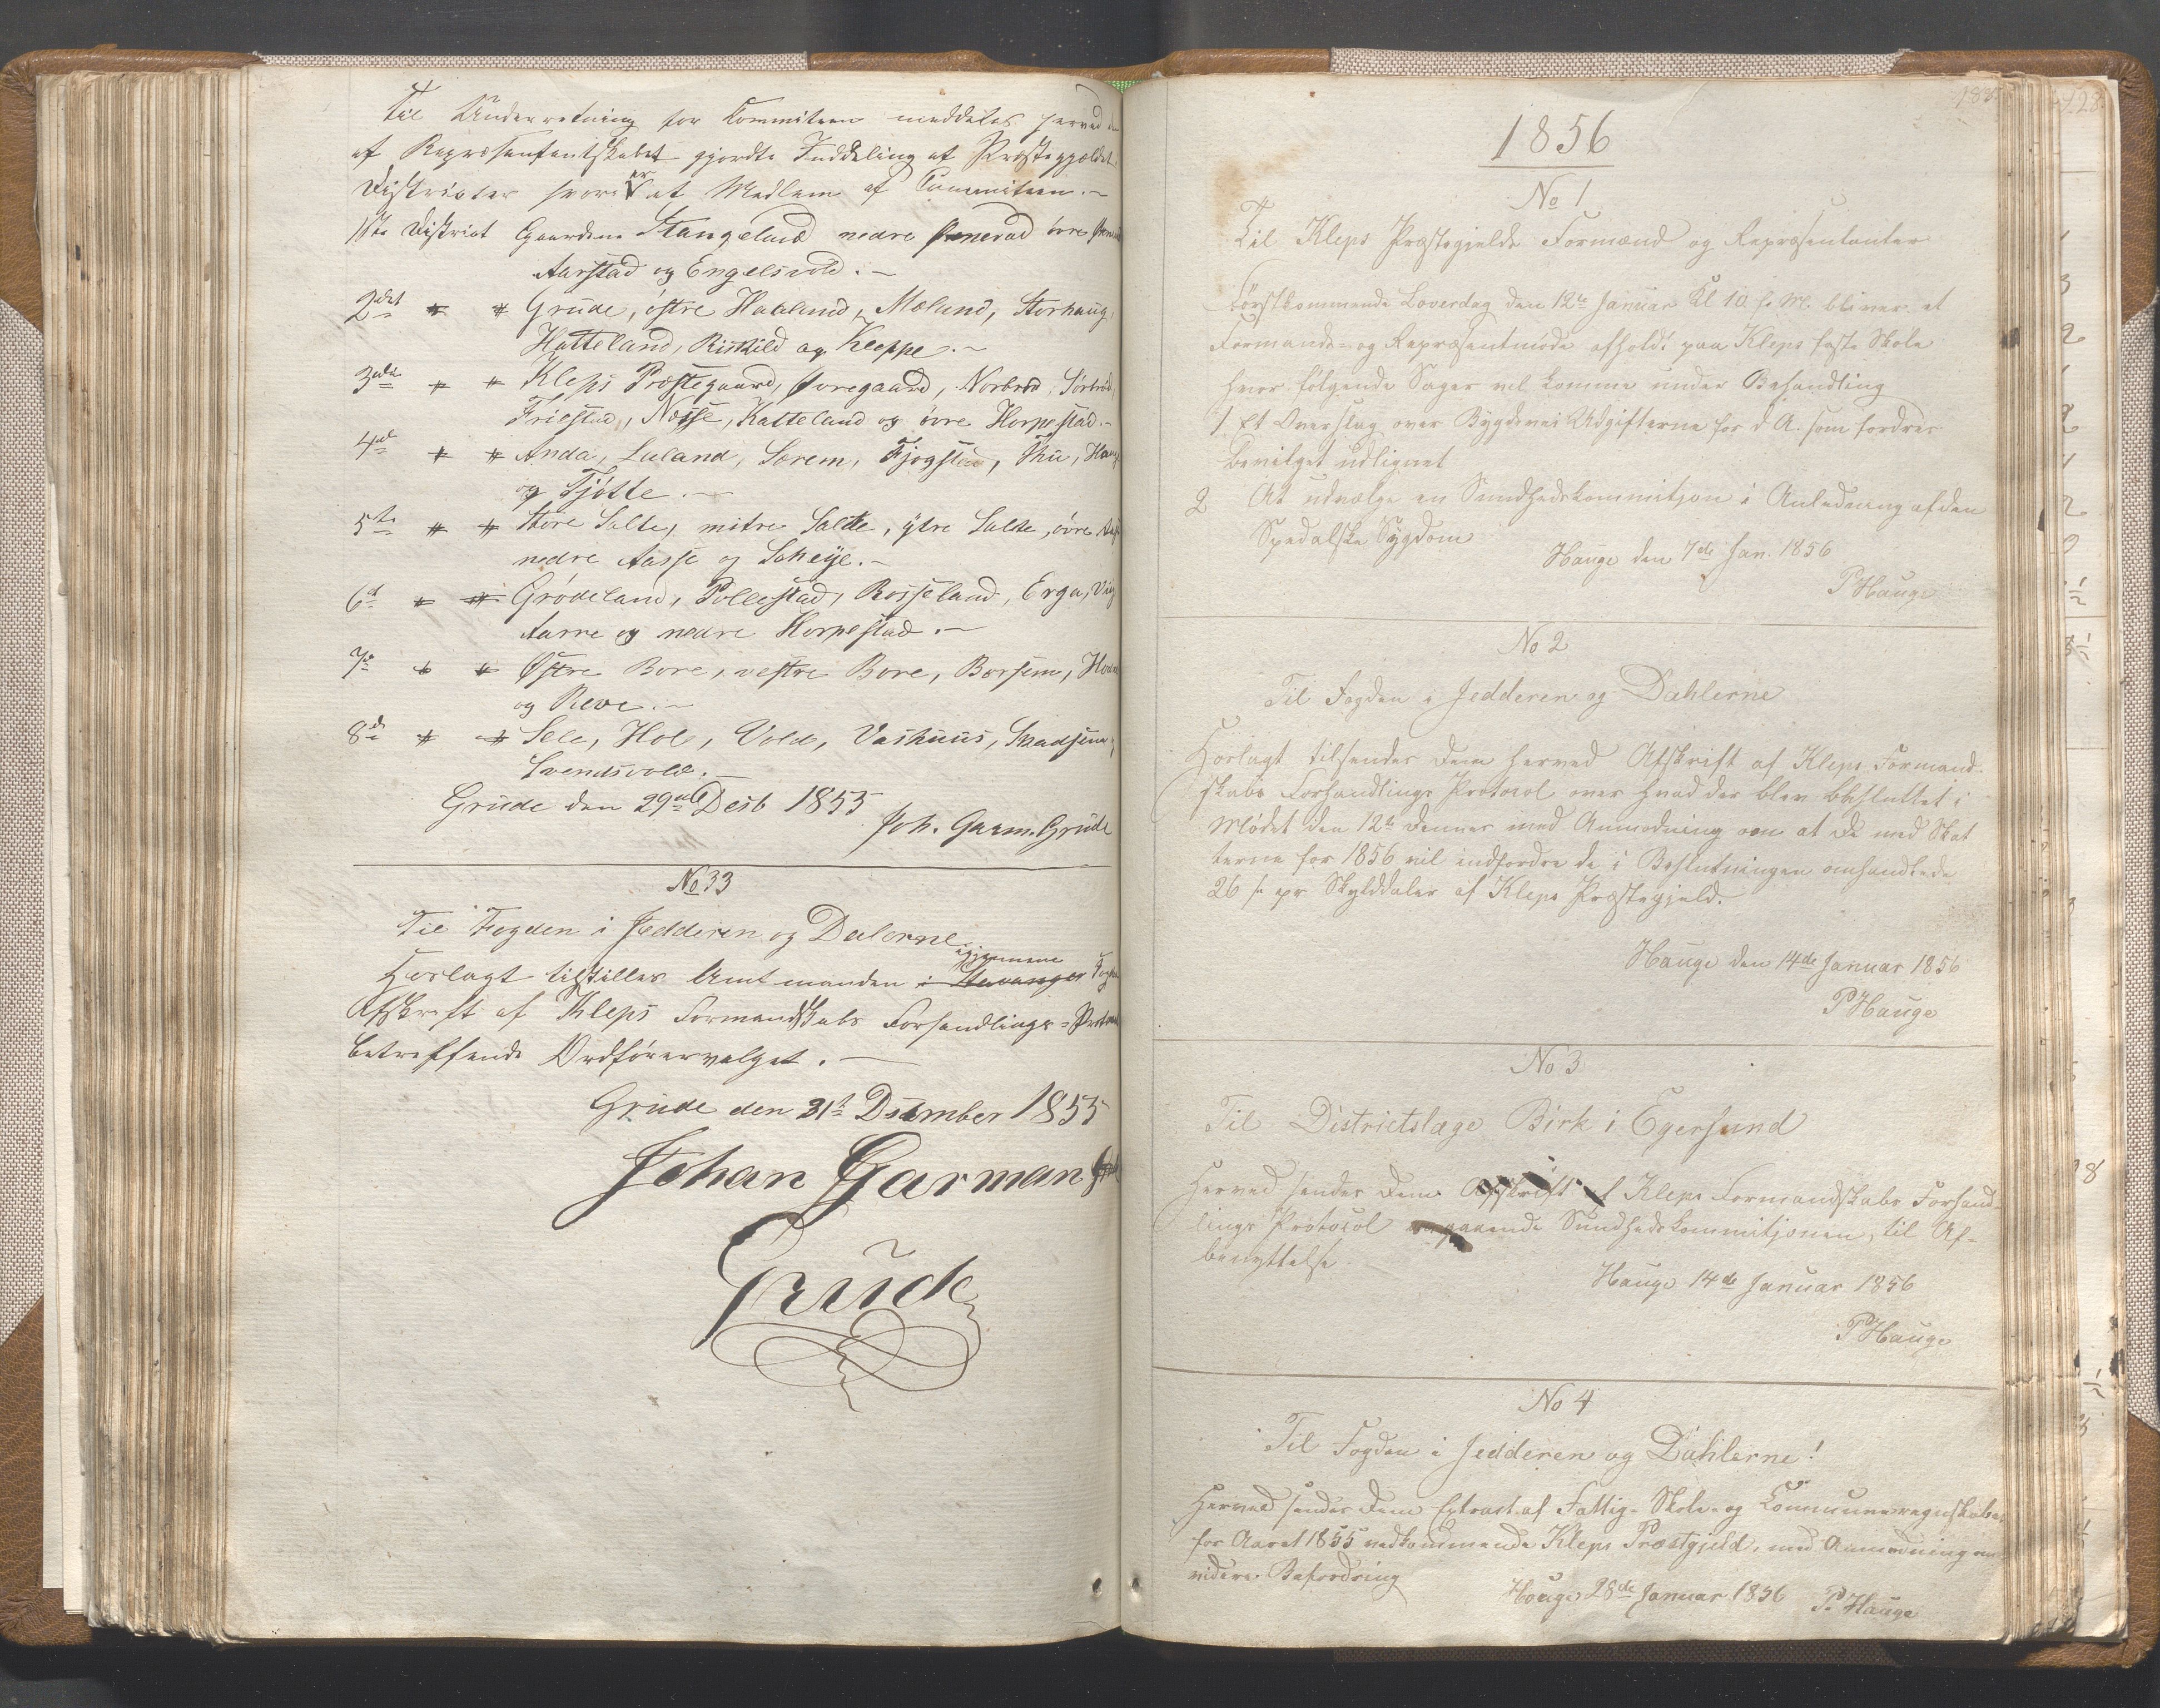 Til Underretning for Commiteen meddeles herved
af Repræsentantskabet gjordte Inddeling af Præstegjældet
Districter hvori er et Medlem af Commiteen.-
1ste District Gaardene Stangeland nedre Ønerad øvre
Aarstad og Engelsvold.-
2det " " Grude, østre Haaland, Mæland, Storhaug,
Hatteland, Riskild og Kleppe.-
3die " " Kleps Præstegaard, Øvregaard, Norbrød, Sørbrød,
Friestad, Næsse, Katteland og øvre Horpestad.-
4de " " Anda, Laland, Sørem, Fjogstad, Thu,
og Tjøtte.-
5te " " Store Salte, mitre Salte, ytre Salte, øvre
nedre Aasse og Scheije.-
6te " " Grødeland, Pollestad, Rosseland, Erga, Vig
Aarre og nedre Horpestad.-
7de " " Østre Bore, vestre Bore, Borsem,
og Reve.-
8de " " Sele, Hol, Vold, Vashuus, Skadsem,
Svendsvold.-
Grude den 29de Desb 1855
Joh. Garm. Grude
No 33
Til Fogden i Jedderen og Dalerne
igjennem
Herlagt tilstilles Amtmanden i Stavanger
Afskrift af Kleps Formandskabs Forhandlings-Protocol
betreffende Ordførervalget.-
Grude den 31te Desember 1855
Johan Garman
Grude
1856
No 1
Til Kleps Præstegjelds Formænd og Repræsentanter
Førstkommende Løverdag den 12te Januar Kl 10 f. M. bliver et
Formands- og Repræsentmøde afholdt paa Kleps faste Skole
hvor følgende Sager vil komme under Behandling
1 Et Overslag over Bygdevei Udgifterne for d. A. som fordres
bevilget udlignet
2 At udvælge en Sundhedskommitjon i Anledning af den
Spedalske Sygdom
Hauge den 7de Jan. 1856
P Hauge
No 2
Til Fogden i Jedderen og Dahlerne
Herlagt tilsendes Dem herved Afskrift af Kleps Formand-
skabs Forhandlings Protocol over hvad der blev besluttet i
Mødet den 12te dennes med Anmodning om at De med Skat
terne for 1856 vil indfordre de i Beslutningen omhandlede
26 s. pr Skylddaler af Kleps Præstegjeld.
Hauge den 14de Januar 1856
P Hauge
No 3
Til Districtslæge Birk i Egersund
Herved sendes Dem Afskrift af Kleps Formandskabs Forhand-
lings Protocol angaaende Sundhedskommitjonen, til Af-
benyttelse
Hauge 14de Januar 1856
P Hauge
No 4
Til Fogden i Jedderen og Dahlerne!
Herved sendes Dem Extract af Fattig- Skole- og Communeregnskaber
for Aaret 1855 vedkommende Kleps Præstgjeld, med Anmodning om
videre Befordring
Hauge 28de Januar 1856 P. Hauge